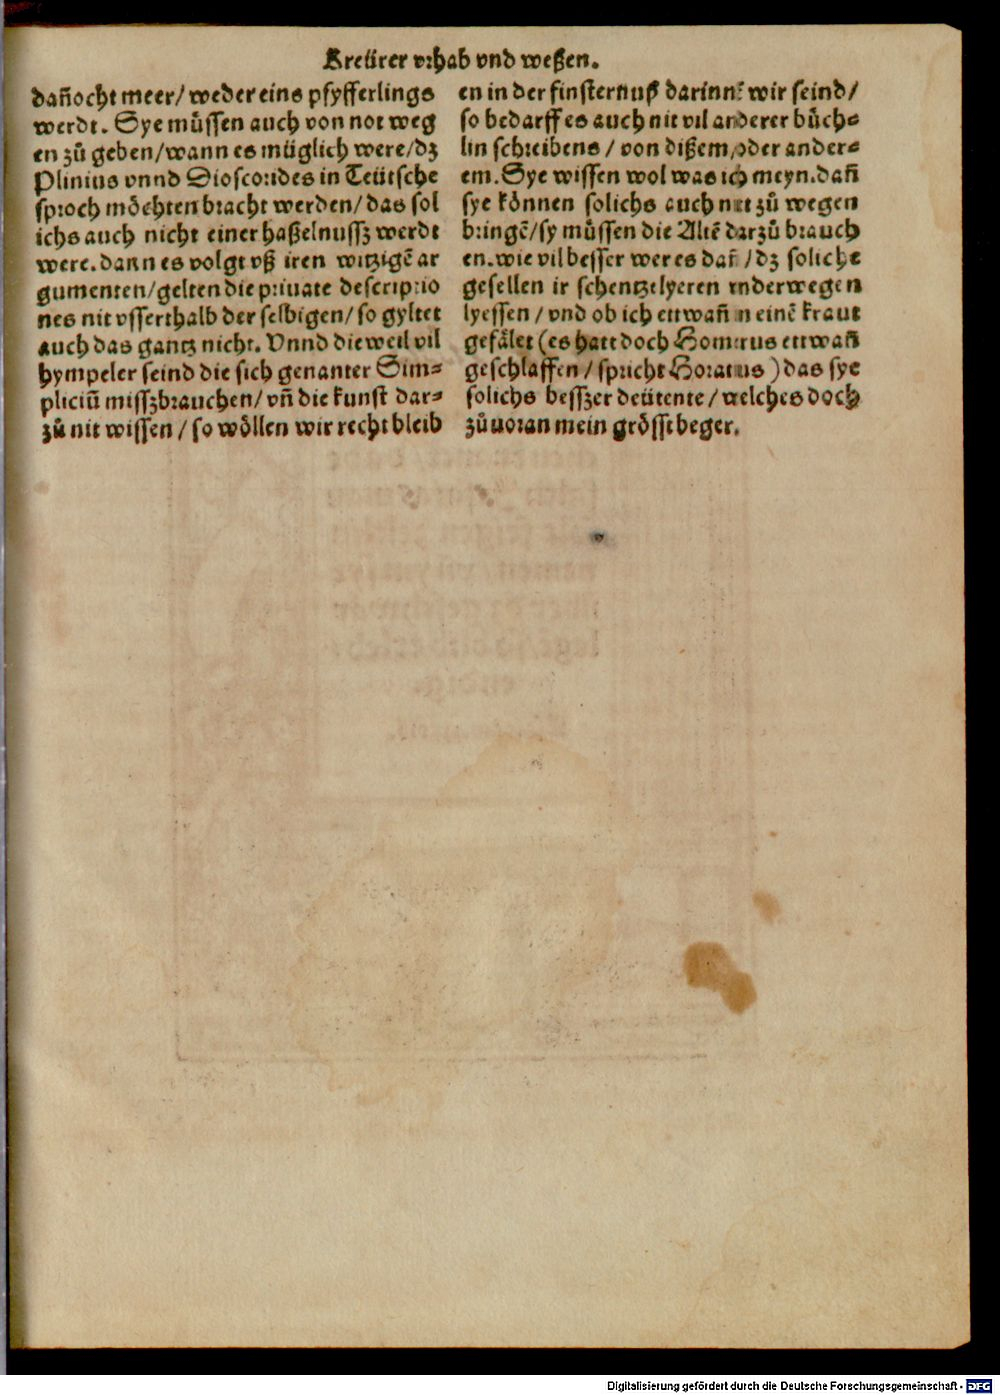 Kreüter vrhab vnd weßen.
dañocht meer/ weder eins pfyfferlings
werdt. Sye müssen auch von not weg
en zů geben/wann es müglich were/dz
Plinius vnnd Dioscorides in Teütsche
sproch möchten bracht werden/ das sol
ichs auch nicht einer haßelnussz werdt
were. dann es volgt vß iren witzigē ar
gumenten/gelten die priuate descriptio
nes nit vsserthalb der selbigen/ so gyltet
auch das gantz nicht. Vnnd die weil vil
hympeler seind die sich genanter Sim⸗
pliciū misszbrauchen/ vñ die kunst dar⸗
zů nit wissen / so wöllen wir recht bleib
en in der finsternuß darinnē wir seind/
so bedarff es auch nit vil anderer büch⸗
lin schreibens / von dißem/oder ander⸗
em. Sye wissen wol was ich meyn. dañ
sye können solichs auch nit zů wegen
bringē/sy müssen die Altē darzů brauch
en. wie vil besser wer es dañ / dz soliche
gesellen ir schentzelyeren vnderwegen
lyessen / vnd ob ich ettwañ in einē kraut
gefälet (es hatt doch Homerus ettwañ
geschlaffen / spricht Horatius ) das sye
solichs besszer deütente / welches doch
zůuoran mein grösst beger.
Digitalisierung gefördert durch die Deutsche Forschungsgemeinschaft - DFG